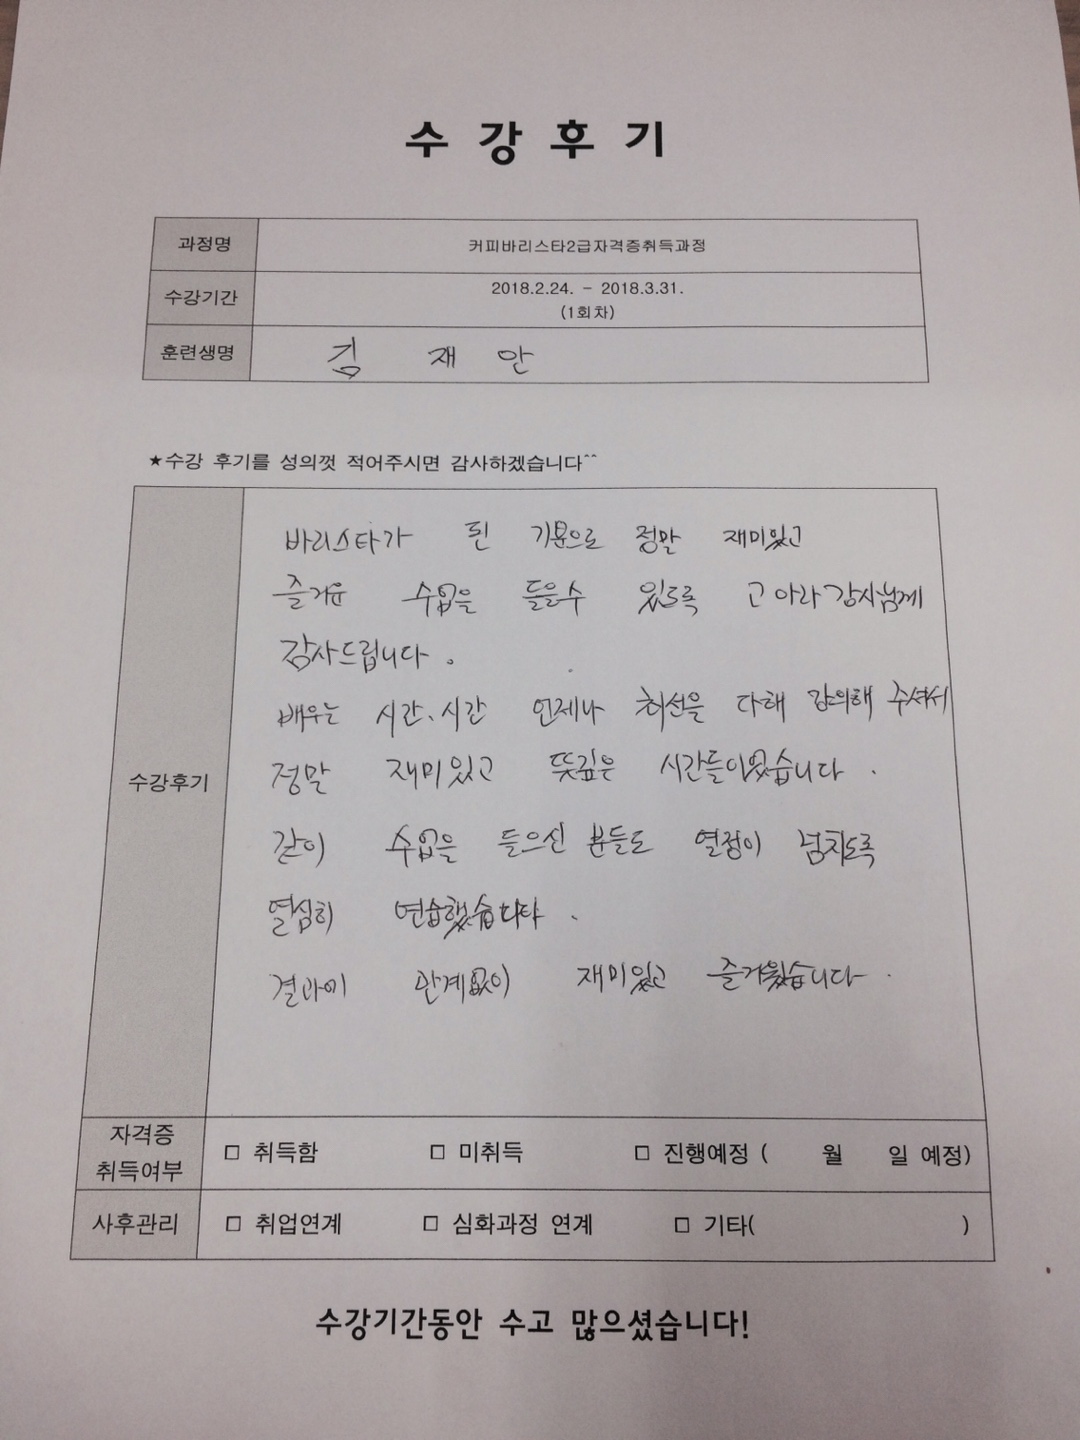 수 강 후 기
과정명 커피바리스타2급자격증취득과정
수강기간 2018.2.24. - 2018.3.31.
(1회차)
훈련생명 김 재 안
★수강 후기를 성의껏 적어주시면 감사하겠습니다^^
바리스타가 된 기분으로 정말 재미있고
즐거운 수업을 들을수 있도록 고아라강사님께
감사드립니다.
배우는 시간.시간 언제나 최선을 다해 강의해 주셔서
수강후기
정말 재미있고 뜻깊은 시간들이었습니다.
같이 수업을 들으신 분들도 열정이 넘치도록
열심히 연습했습니다.
결과에 관계없이 재미있고 즐거웠습니다.
자격증
취득여부
□ 취득함 □ 미취득 □ 진행예정 ( 월 일 예정)
사후관리 □ 취업연계 □ 심화과정 연계 □ 기타( )
수강기간동안 수고 많으셨습니다!